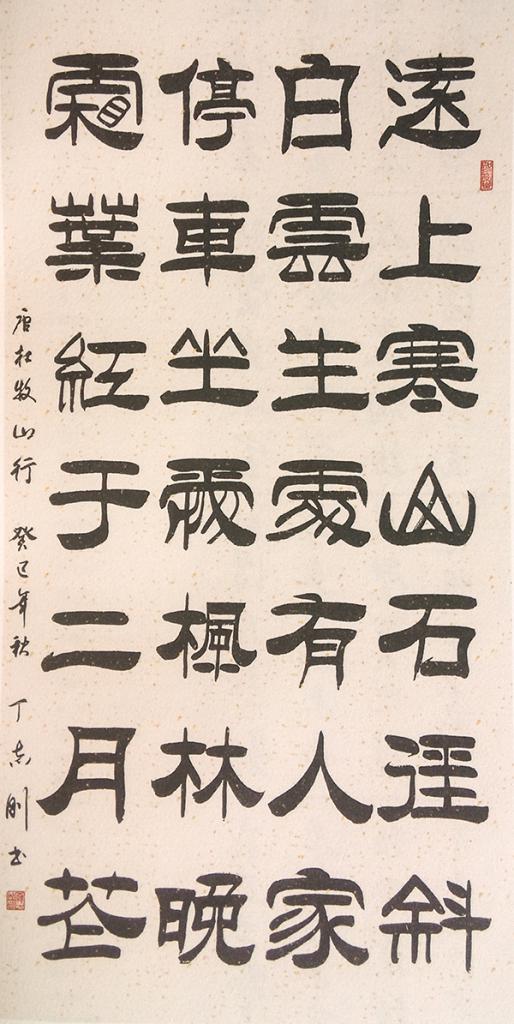 遠上寒山石徑斜
白雲生處有人家
停車坐愛楓林晚
霜葉紅于二月花
唐杜牧山行 癸巳年秋 丁志刚书